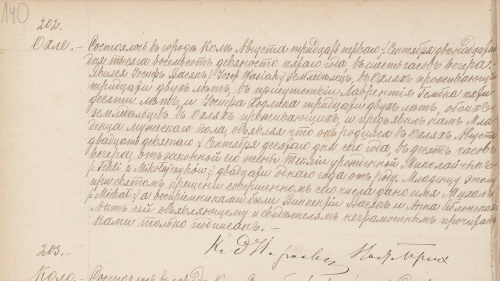 140
202.
Охле. – Состоялось въ городѣ Колѣ Августа тридцать перваго / Сентября двѣнадцатаго
дня тысяча восемьсотъ девяносто пятаго года въ шесть часовъ вечера.
Явился Іосифъ Васякъ / Józef Wasiak / земледѣлецъ, въ Охляхъ проживающій
тридцати двухъ лѣтъ, въ присутствіи Лаврентія Гембка пяти-
десяти лѣтъ и Іосифа тридцати двухъ лѣтъ, обоихъ
земледѣльцевъ въ Охляхъ проживающихъ, и предъявилъ намъ Мла-
денца мужескаго пола, объявляя что онъ родился въ Охляхъ Августа
двадцать девятаго / Сентября десятаго дня сего года въ десять часовъ
вечера, отъ законной его жены Теклы урожденной Николайчыкъ
/ Tekli z Mikołajczyków / двадцати одного года отъ роду. Младенцу этому
при святомъ крещеніи совершенномъ сего числа дано имя Михаилъ
/ Michał / а воспріемниками были Викентій Васякъ и Анна Яблонская.
Актъ сей объявляющему и свидѣтелямъ неграмотнымъ прочитанъ
Нами только подписанъ. –
Кс.
203.
Кола. – Состоялось въ